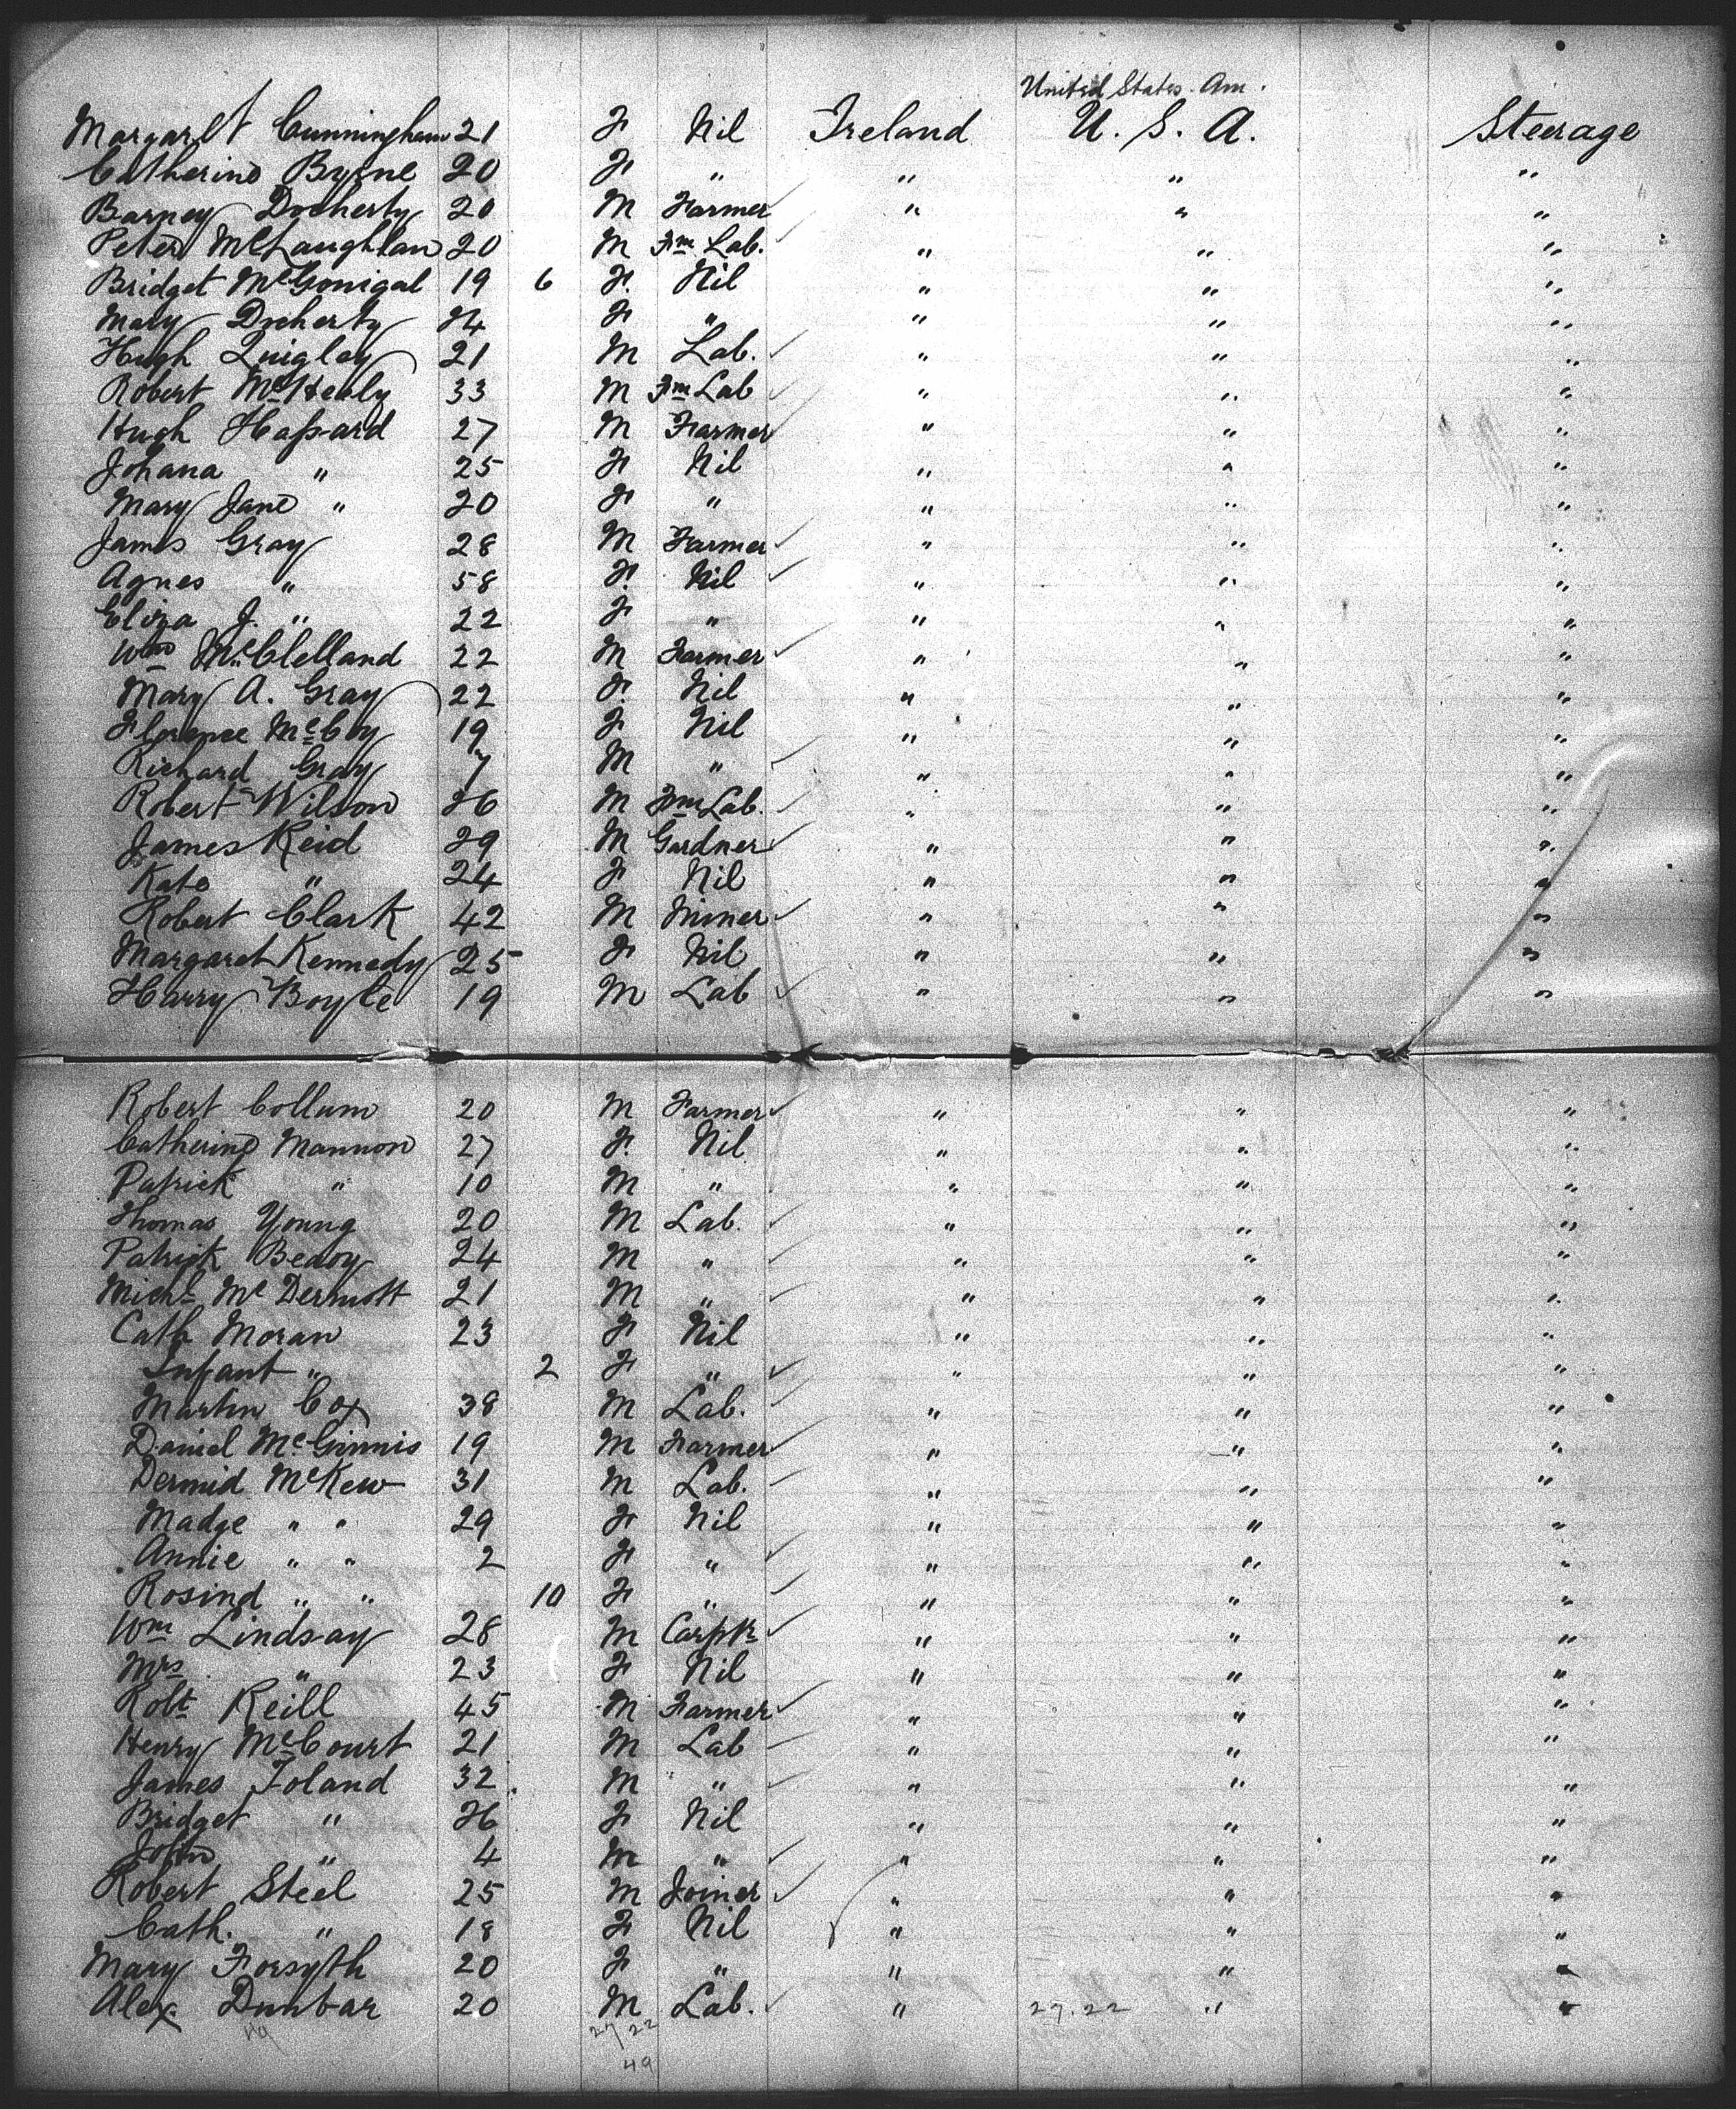 United States. Am.
Margaret Cunningham 21 F Nil Ireland U. S. A. Steerage
Catherine Byrne 20 F " " " "
Barney Docherty 20 M Farmer " " "
Peter McLaughlan 20 M Fm Lab. " " "
Bridget McGonigal 19 6 F. Nil " " "
Mary Docherty 24 F " " " "
Hugh Quigley 21 M Lab. " " "
Robert 33 M Fm Lab " " "
Hugh Hassard 27 M Farmer " " "
Johana " 25 F Nil " " "
Mary Jane " 20 F " " " "
James Gray 28 M Farmer " " "
Agnes " 58 F. Nil " " "
Eliza J. " 22 F " " " "
Wm McClelland 22 M Farmer " " "
Mary A. Gray 22 F. Nil " " "
Florence McCoy 19 F Nil " " "
Richard Gray 7 M " " " "
Robert Wilson 26 M Fm Lab. " " "
James Reid 29 M Gardner " " "
Kate " 24 F Nil " " "
Robert Clark 42 M Miner " " "
Margaret Kennedy 25 F Nil " " "
Harry Boyle 19 M Lab " " "
Robert Collum 20 M Farmer " " "
Catherine Mannon 27 F. Nil " " "
Patrick " 10 M " " " "
Thomas Young 20 M Lab. " " "
Patrick 24 M " " " "
Michl McDermott 21 M " " " "
Cath Moran 23 F Nil " " "
Infant " 2 F " " " "
Martin Cox 38 M Lab. " " "
Daniel McGinnis 19 M Farmer " " "
Dermid McKew 31 M Lab. " " "
Madge " " 29 F Nil " " "
Annie " " 2 F " " " "
Rosind " " 10 F " " " "
Wm Lindsay 28 M Carptr " " "
Mrs " 23 F Nil " " "
Robt Keill 45 M Farmer " " "
Henry McCourt 21 M Lab " " "
James Toland 32 M " " " "
Bridget " 26 F Nil " " "
John " 4 M " " " "
Robert Steel 25 M Joiner " " "
Cath. " 18 F Nil " " "
Mary Forsyth 20 F " " " "
Alex Dunbar 20 M Lab. " 27.22 " "
49 27 22
49